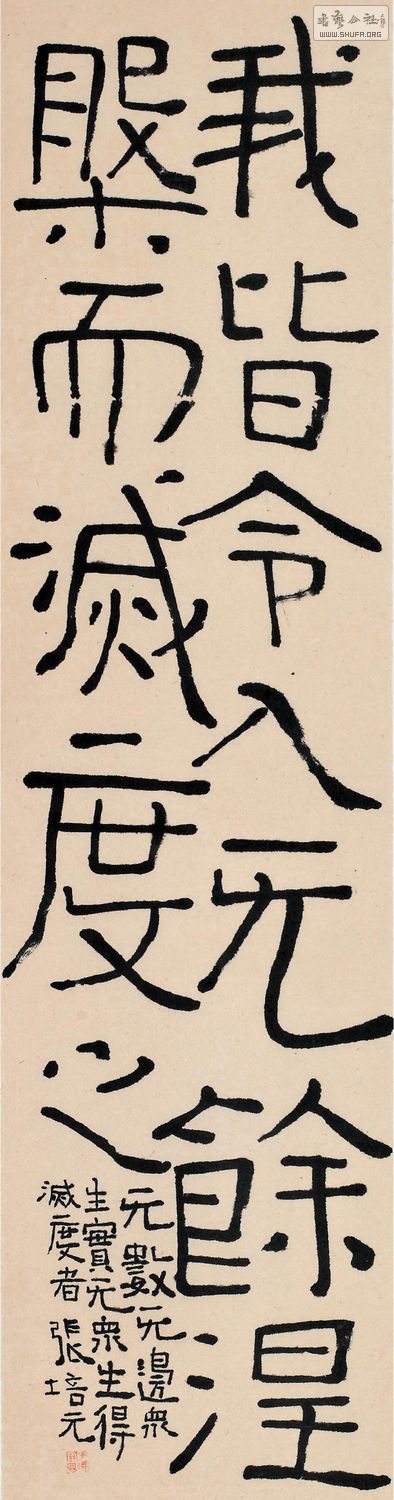 書藝公社
WWW.SHUFA.ORG
我皆令入无餘涅
槃而滅度之
无數无邊衆
生實无衆生得
滅度者 張培元